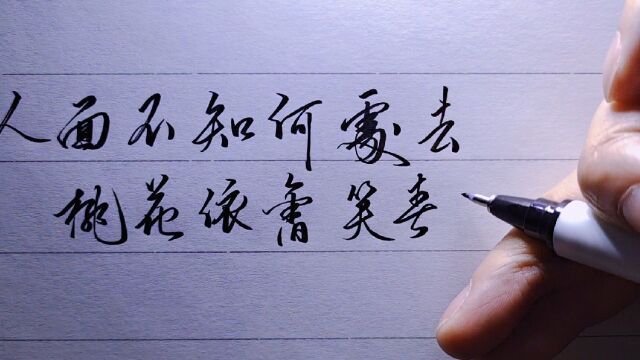 人面不知何處去
桃花依舊笑春